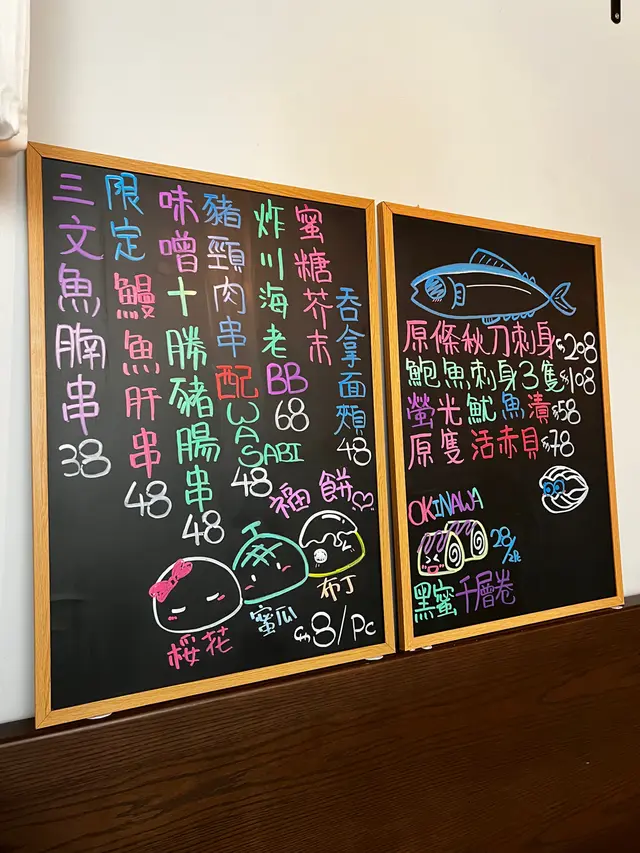 三文魚腩串
38
限定鰻魚肝串
48
味噌十勝豬腸串
48
豬頸肉串配WASABI
48
炸川海老BB
68
蜜糖芥末
吞拿面頰
48
福餅
桜花
蜜瓜
布丁
$8/Pc
原條秋刀刺身$208
鮑魚刺身3隻$108
螢光魷魚漬$58
原隻活赤貝$78
OKINAWA
28/2
黑蜜千層卷